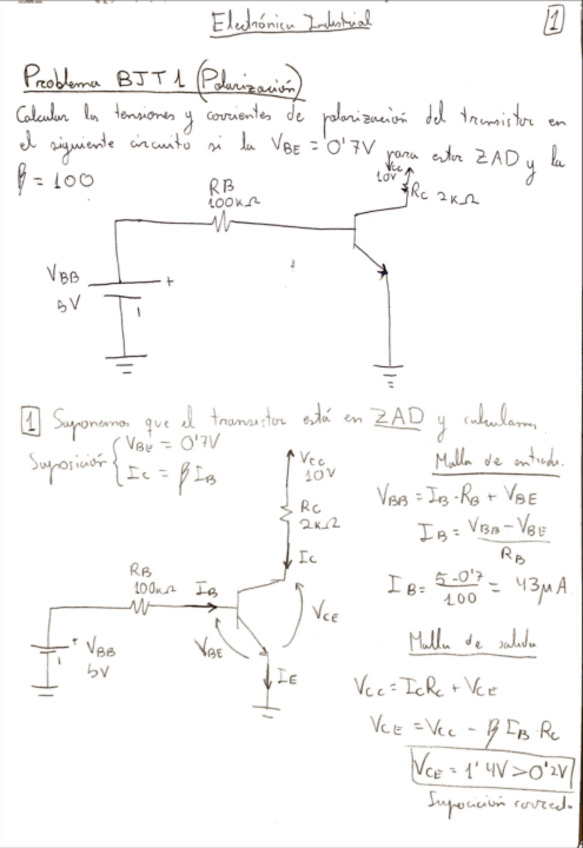 Electrónica Industrial
1
Problema BJT 1 (Polarización)
Calcular las tensiones y corrientes de polarización del transistor en
el siguiente circuito si la VBE = 0'7V para estar ZAD y la
β = 100
Vcc
10V
RC 2KΩ
RB
100KΩ
VBB
5V
+
1 Suponemos que el transistor está en ZAD y calculamos.
Suposición { VBE = 0'7V
IC = β IB
Vcc
10V
RC
2KΩ
IC
RB
100KΩ
IB
VCE
VBE
+ VBB
5V
IE
Malla de entrada.
VBB = IB·RB + VBE
IB = VBB - VBE / RB
IB = 5-0'7 / 100 = 43μA
Malla de salida
Vcc = IcRc + VCE
VCE = Vcc - β IB·Rc
VCE = 1'4V > 0'2V
Suposición correcta